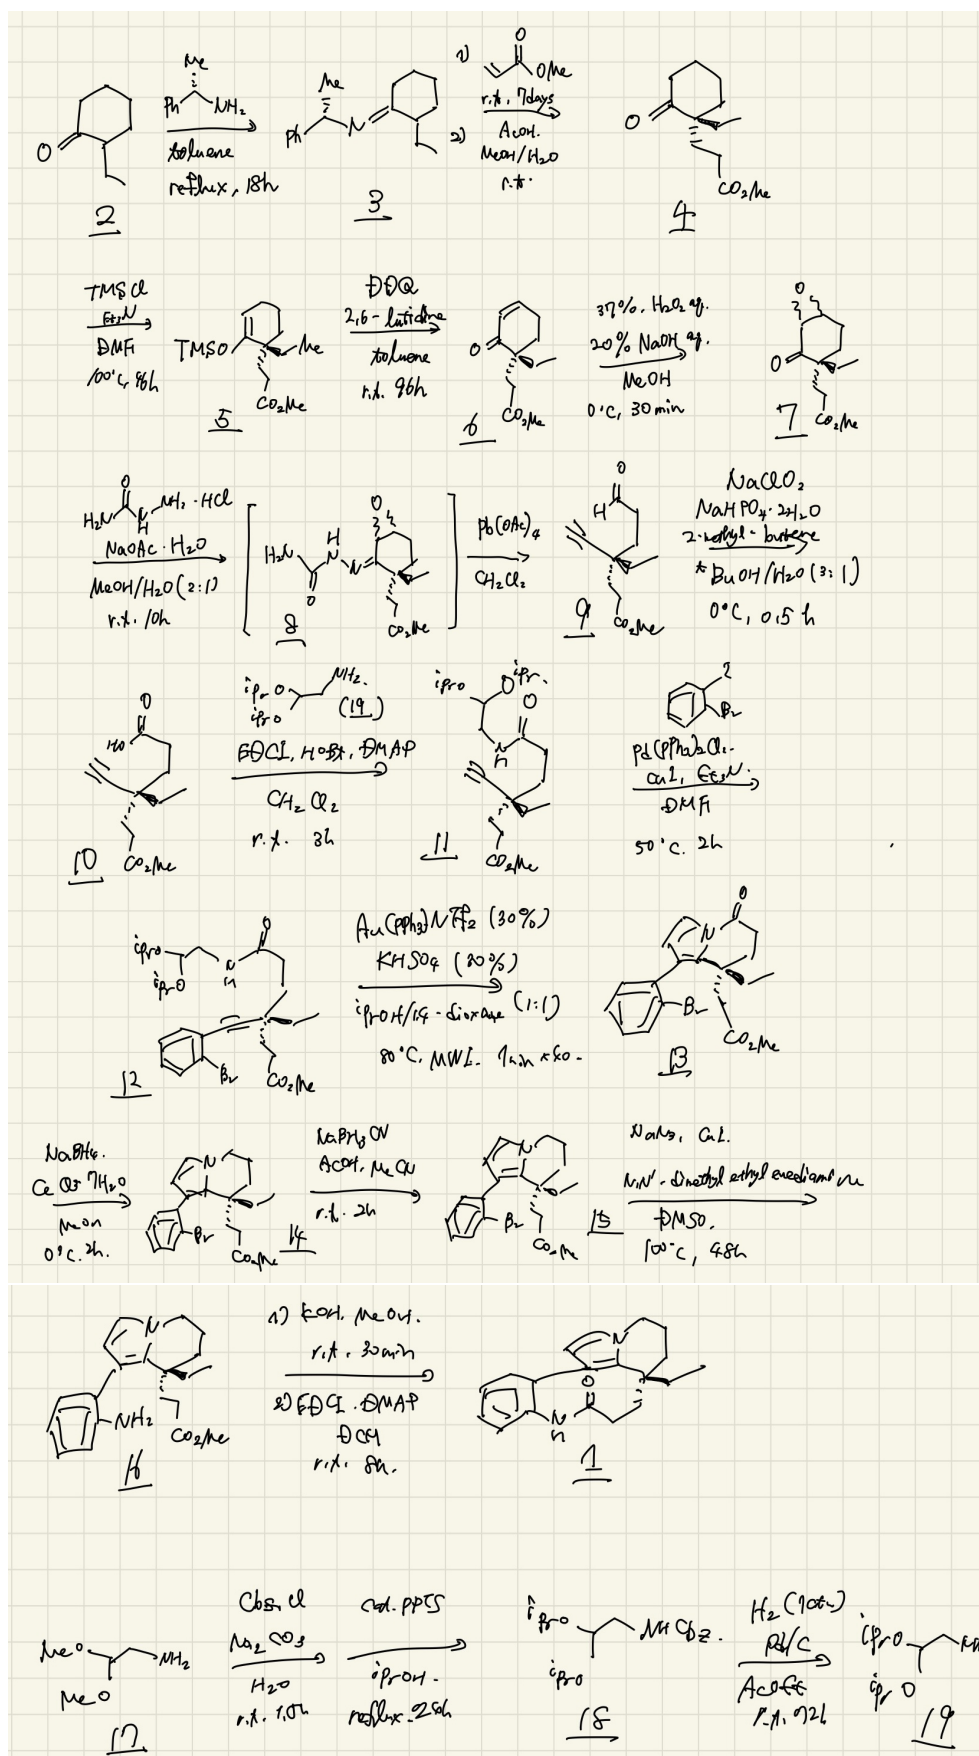 Me
Ph NH2
toluene
reflux, 18h
O
2
Me
Ph N
3
1)
O
OMe
r.t., 7days
2)
AcOH.
MeOH/H2O
r.t.
O
CO2Me
4
TMSCl
Et3N
DMF
100°C, 96h
TMSO Me
CO2Me
5
DDQ
2,6-lutidine
toluene
r.t. 96h
O
CO2Me
6
37%. H2O2 aq.
20% NaOH aq.
MeOH
0°C, 30min
O
O
CO2Me
7
O
H2N N NH2 ·HCl
H
NaOAc·H2O
MeOH/H2O (2:1)
r.t. 10h
O
H2N N N
H
O
CO2Me
8
Pb(OAc)4
CH2Cl2
O
H
CO2Me
9
NaClO2
NaHPO4·2H2O
2-methyl-butene
tBuOH/H2O (3:1)
0°C, 0.5h
O
HO
CO2Me
10
iPrO NH2.
iPrO (19)
EDCI, HOBt, DMAP
CH2Cl2
r.t. 3h
iPrO OiPr.
O
N
H
CO2Me
11
I
Br
Pd(PPh3)2Cl2.
CuI, Et3N.
DMF
50°C. 2h
iPrO O
iPrO N
H
Br CO2Me
12
Au(PPh3)NTf2 (30%)
KHSO4 (20%)
iPrOH/1.4-dioxane (1:1)
80°C, MWI. 1min ×40.
O
N
Br
CO2Me
13
NaBH4.
CeCl3·7H2O
MeOH
0°C. 2h.
N
Br
CO2Me
14
NaBH3CN
AcOH, MeCN
r.t. 2h
N
Br
CO2Me
15
NaN3, CuI.
N,N'-dimethyl ethylenediamine
DMSO.
100°C, 48h
N
NH2
CO2Me
16
1) KOH. MeOH.
r.t. 30min
2) EDCI. DMAP
DCM
r.t. 8h.
N
O
N
H
1
MeO NH2
MeO
17
Cbz Cl
Na2CO3
H2O
cat. PPTS
iPrOH.
reflux
iPrO NHCbz.
iPrO
18
H2
Pd/C
AcOEt
r.t.
iPrO
iPrO
19